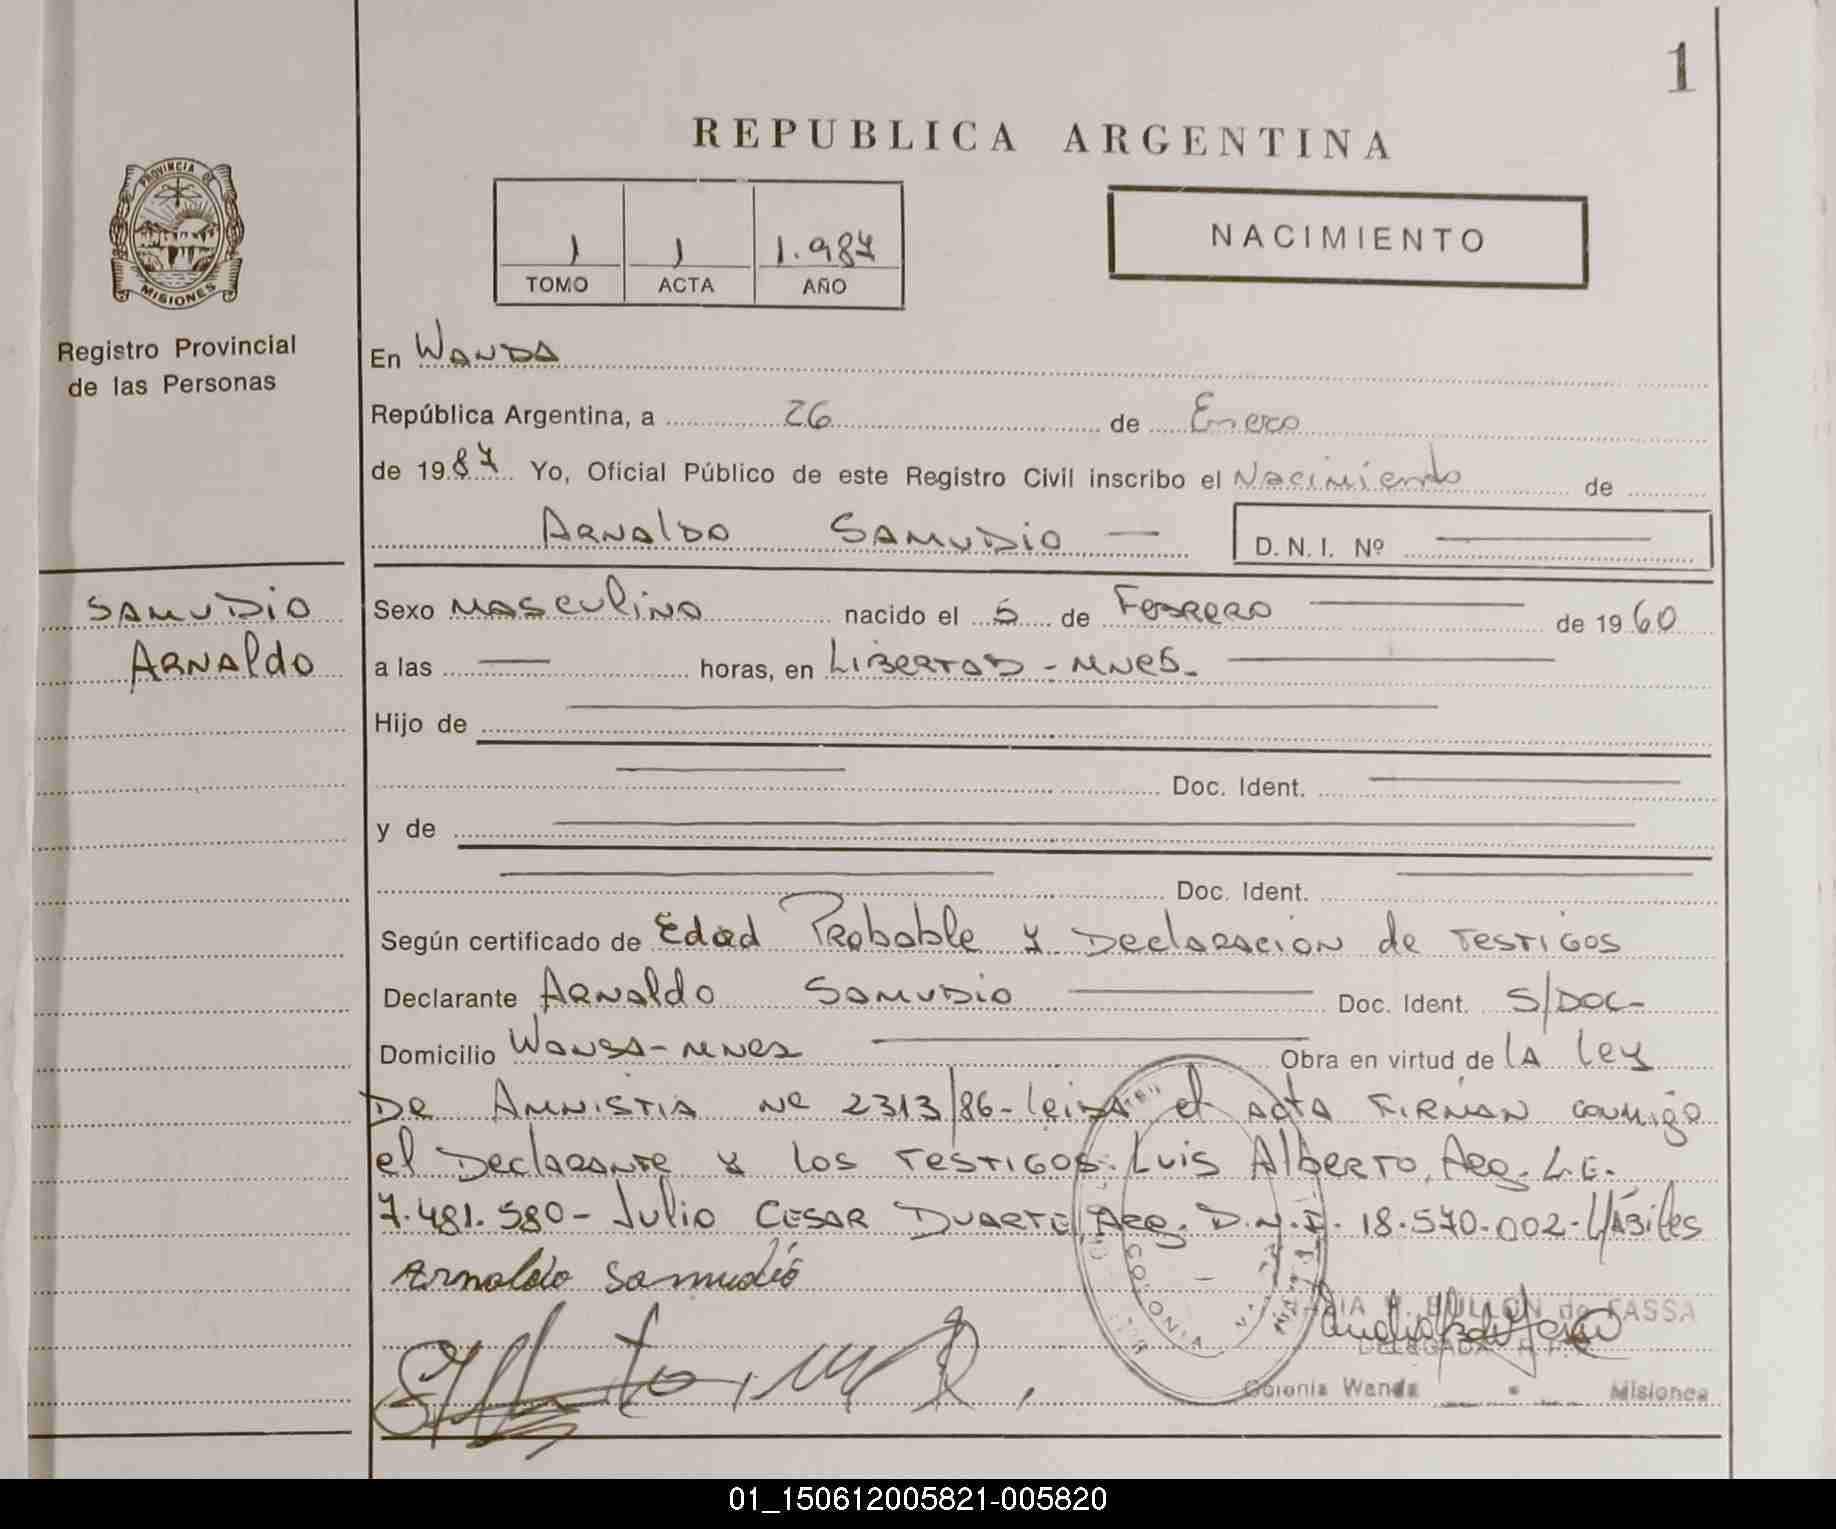 1
REPUBLICA ARGENTINA
PROVINCIA D
MISIONES
1 1 1.987
TOMO ACTA AÑO
NACIMIENTO
Registro Provincial
de las Personas
En WANDA
República Argentina, a 26 de Enero
de 1987 Yo, Oficial Público de este Registro Civil inscribo el Nacimiento de
ARNALDO SAMUDIO —
D. N. I. Nº —
SAMUDIO
ARNALDO
Sexo MASCULINO nacido el 5 de FEBRERO — de 1960
a las — horas, en LIBERTAD - MNES. —
Hijo de —
— Doc. Ident. —
y de —
— Doc. Ident. —
Según certificado de Edad Probable y Declaración de Testigos
Declarante ARNALDO SAMUDIO — Doc. Ident. S/DOC-
Domicilio WANDA - MNES — Obra en virtud de LA Ley
De AMNISTIA Nº 2313/86 - leida el acta FIRMAN conmigo
el Declarante y los testigos: Luis Alberto, Arg. L.E.
7.481.580 - Julio CESAR DUARTE, Arg. D.N.I. 18.570.002 - Hábiles
Arnaldo Samudio
COLONIA
BULLON de FASSA
DELEGADA R.P.P.
Colonia Wanda - Misiones
01_150612005821-005820